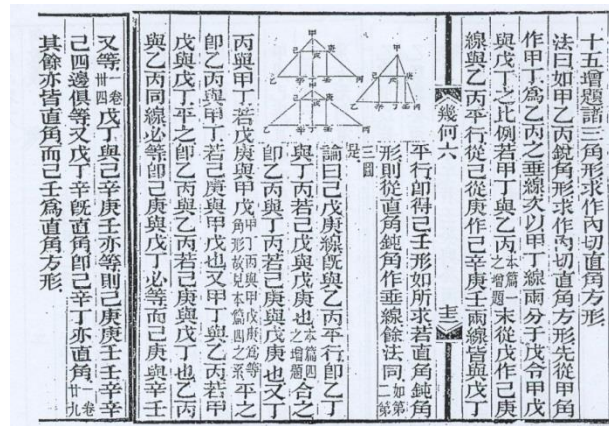 十五增題諸三角形求作內切直角方形
法曰如甲乙丙銳角形求作內切直角方形先從甲角
作甲丁爲乙丙之垂線次以甲丁線兩分于戊令甲戊
與戊丁之比例若甲丁與乙丙本篇一之增題末從戊作己庚
線與乙丙平行從己從庚作己辛庚壬兩線皆與戊丁
幾何六
十三
平行卽得己壬形如所求若直角鈍角
形則從直角鈍角作垂線餘法同如第二第
三圖是
論曰己戊庚線旣與乙丙平行卽乙丁
與丁丙若己戊與戊庚也本篇四之增題合之
卽乙丙與丁丙若己庚與戊庚也又丁
丙與甲丁若戊庚與甲戊甲丁丙與甲戊庚爲等角形故見本篇四之系平之
卽乙丙與甲丁若己庚與甲戊也又甲丁與乙丙若甲
戊與戊丁平之卽乙丙與乙丙若己庚與戊丁也乙丙
與乙丙同線必等卽己庚與戊丁必等而己庚與辛壬
又等一卷卅四戊丁與己辛庚壬亦等則己庚庚壬壬辛辛
己四邊俱等又戊丁辛旣直角卽己辛丁亦直角一卷廿九
其餘亦皆直角而己壬爲直角方形